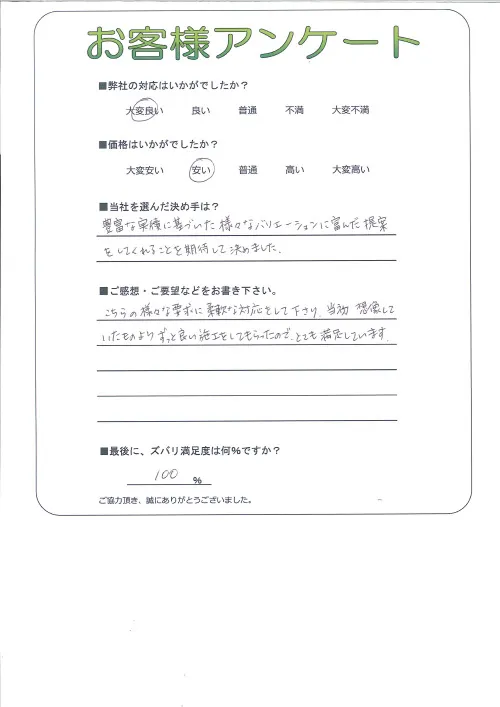 お客様アンケート
■弊社の対応はいかがでしたか？
大変良い 良い 普通 不満 大変不満
■価格はいかがでしたか？
大変安い 安い 普通 高い 大変高い
■当社を選んだ決め手は？
豊富な実績に基づいた様々なバリエーションに富んだ提案
をしてくれることを期待して決めました。
■ご感想・ご要望などをお書き下さい。
こちらの様々な要求に柔軟な対応をして下さり、当初 想像して
いたものよりずっと良い施工をしてもらったので、とても満足しています。
■最後に、ズバリ満足度は何％ですか？
100 ％
ご協力頂き、誠にありがとうございました。